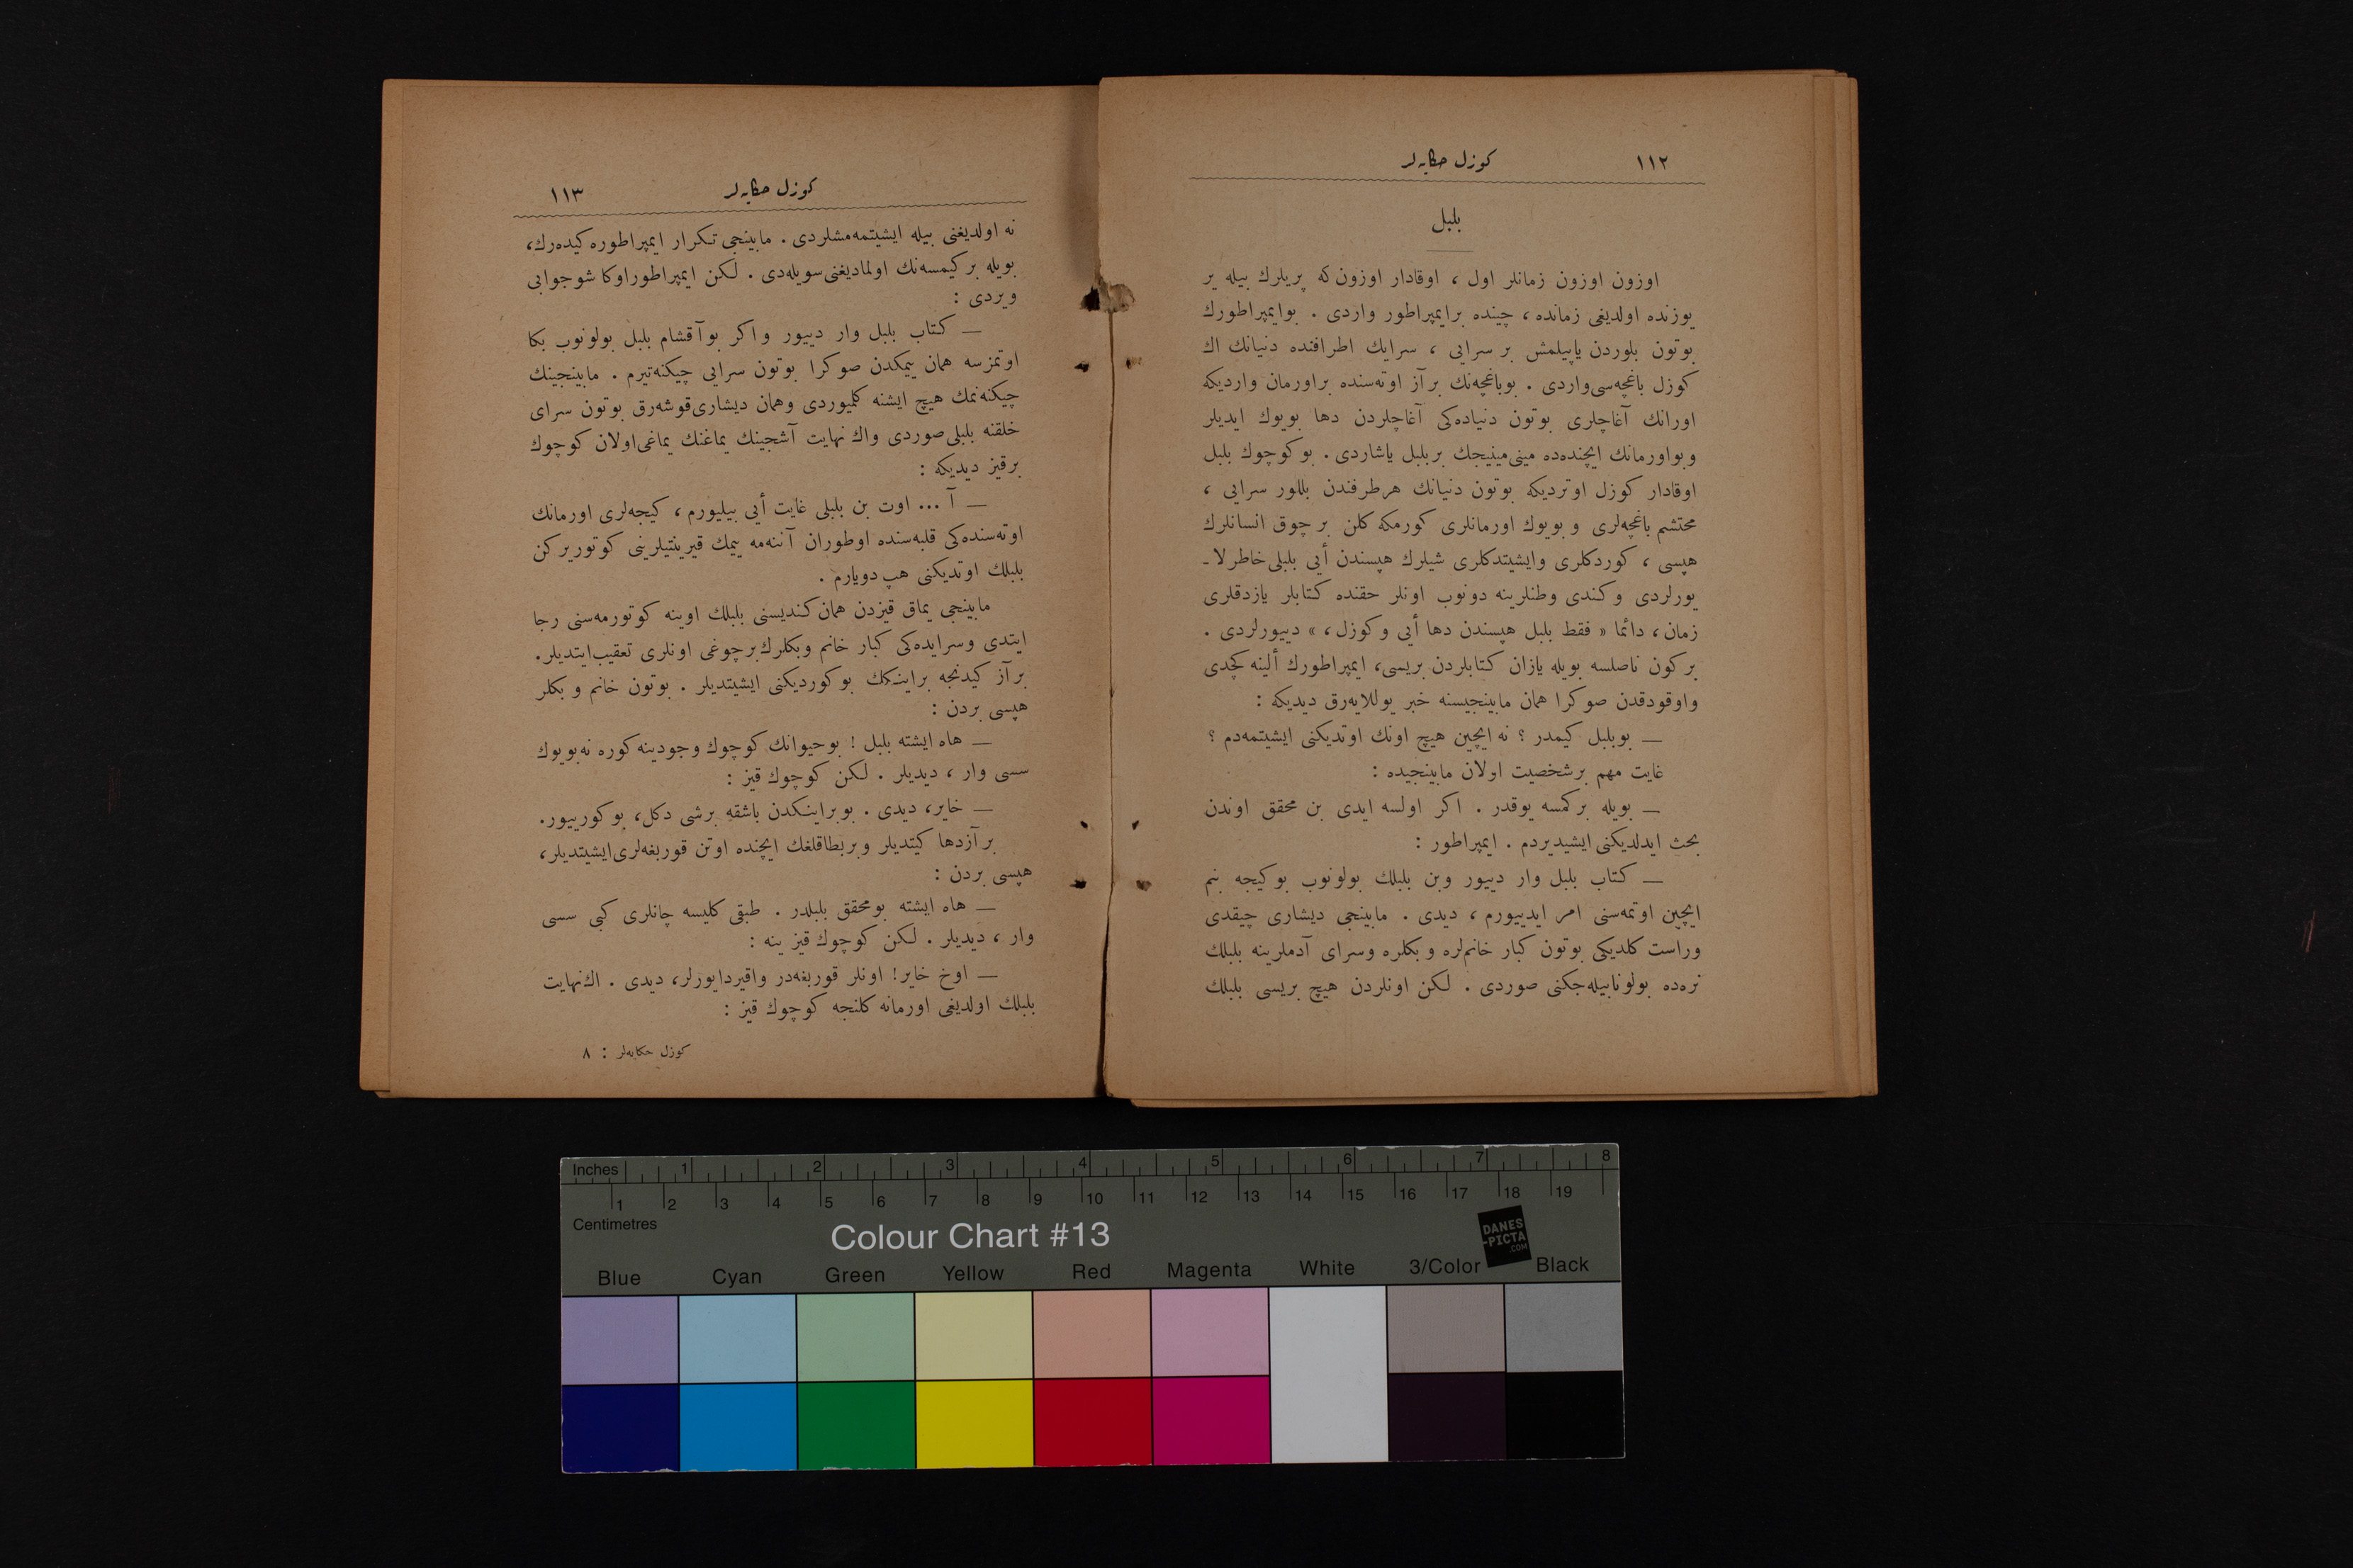 ١١٢
كوزل حكايه‌لر
بلبل
اوزون اوزون زمانلر اول ، اوقادار اوزون كه پريلرك بيله ير
يوزنده اولديغى زمانده ، چينده برايمپراطور واردى . بوايمپراطورك
بوتون بلوردن ياپيلمش بر سرايى ، سرايك اطرافنده دنيانك اك
كوزل باغچه‌سى‌واردى . بوباغچه‌نك برآز اوته‌سنده براورمان وارديكه
اورانك آغاچلرى بوتون دنياده‌كى آغاچلردن دها بويوك ايديلر
وبواورمانك ايچنده‌ده مينى‌مينيجك بربلبل ياشاردى . بو كوچوك بلبل
اوقادار كوزل اوترديكه بوتون دنيانك هرطرفندن بللور سرايى ،
محتشم باغچه‌لرى و بويوك اورمانلرى كورمكه كلن بر چوق انسانلرك
هپسى ، كوردكلرى وايشيتدكلرى شيلرك هپسندن أيى بلبلى خاطرلا ـ
يورلردى وكندى وطنلرينه دونوب اونلر حقنده كتابلر يازدقلرى
زمان، دائما « فقط بلبل هپسندن دها أيى و كوزل ، » دييورلردى .
بركون ناصلسه بويله يازان كتابلردن بريسى، ايمپراطورك ألينه كچدى
واوقودقدن صوكرا همان مابينجيسنه خبر يوللايه‌رق ديديكه :
— بوبلبل كيمدر ؟ نه ايچين هيچ اونك اوتديكنى ايشيتمه‌دم ؟
غايت مهم برشخصيت اولان مابينجيده :
— بويله بركمسه يوقدر . اكر اولسه ايدى بن محقق اوندن
بحث ايدلديكنى ايشيديردم . ايمپراطور :
— كتاب بلبل وار دييور وبن بلبلك بولونوب بوكيجه بنم
ايچين اوتمه‌سنى امر ايدييورم ، ديدى . مابينجى ديشارى چيقدى
وراست كلديكى بوتون كبار خانم‌لره و بكلره وسراى آدملرينه بلبلك
نره‌ده بولونابيله‌جكنى صوردى . لكن اونلردن هيچ بريسى بلبلك
كوزل حكايه‌لر
١١٣
نه اولديغنى بيله ايشيتمه‌مشلردى . مابينجى تكرار ايمپراطوره كيده‌رك،
بويله بر كيمسه‌نك اولماديغنى سويله‌دى . لكن ايمپراطوراوكا شو جوابى
ويردى :
— كتاب بلبل وار دييور واكر بوآقشام بلبل بولونوب بكا
اوتمزسه همان ييمكدن صوكرا بوتون سرايى چيكنه‌تيرم . مابينجينك
چيكنه‌نمك هيچ ايشنه كلميوردى وهمان ديشارى‌قوشه‌رق بوتون سراى
خلقنه بلبلى صوردى واك نهايت آشجينك يماغنك يماغى‌اولان كوچوك
برقيز ديديكه :
— آ ... اوت بن بلبلى غايت أيى بيليورم ، كيجه‌لرى اورمانك
اوته‌سنده‌كى قلبه‌سنده اوطوران آننه‌مه ييمك قيرينتيلرينى كوتوريركن
بلبلك اوتديكنى هپ دويارم .
مابينجى يماق قيزدن همان كنديسنى بلبلك اوينه كوتورمه‌سنى رجا
ايتدى وسرايده‌كى كبار خانم وبكلرك برچوغى اونلرى تعقيب ايتديلر.
برآز كيدنجه براينكك بوكورديكنى ايشيتديلر . بوتون خانم و بكلر
هپسى بردن :
— هاه ايشته بلبل ! بوحيوانك كوچوك وجودينه كوره نه‌بويوك
سسى وار ، ديديلر . لكن كوچوك قيز :
— خاير، ديدى . بوبراينكدن باشقه برشى دكل، بوكورييور.
برآزدها كيتديلر وبربطاقلغك ايچنده اوتن قوربغه‌لرى‌ايشيتديلر،
هپسى بردن :
— هاه ايشته بومحقق بلبلدر . طبقى كليسه چانلرى كبى سسى
وار ، ديديلر . لكن كوچوك قيز ينه :
— اوخ خاير! اونلر قوربغه‌در واقيردايورلر، ديدى . اك‌نهايت
بلبلك اولديغى اورمانه كلنجه كوچوك قيز :
كوزل حكايه‌لر : ٨
Inches 1 2 3 4 5 6 7 8
1 2 3 4 5 6 7 8 9 10 11 12 13 14 15 16 17 18 19
Centimetres
Colour Chart #13
DANES
-PICTA
.COM
Blue Cyan Green Yellow Red Magenta White 3/Color Black